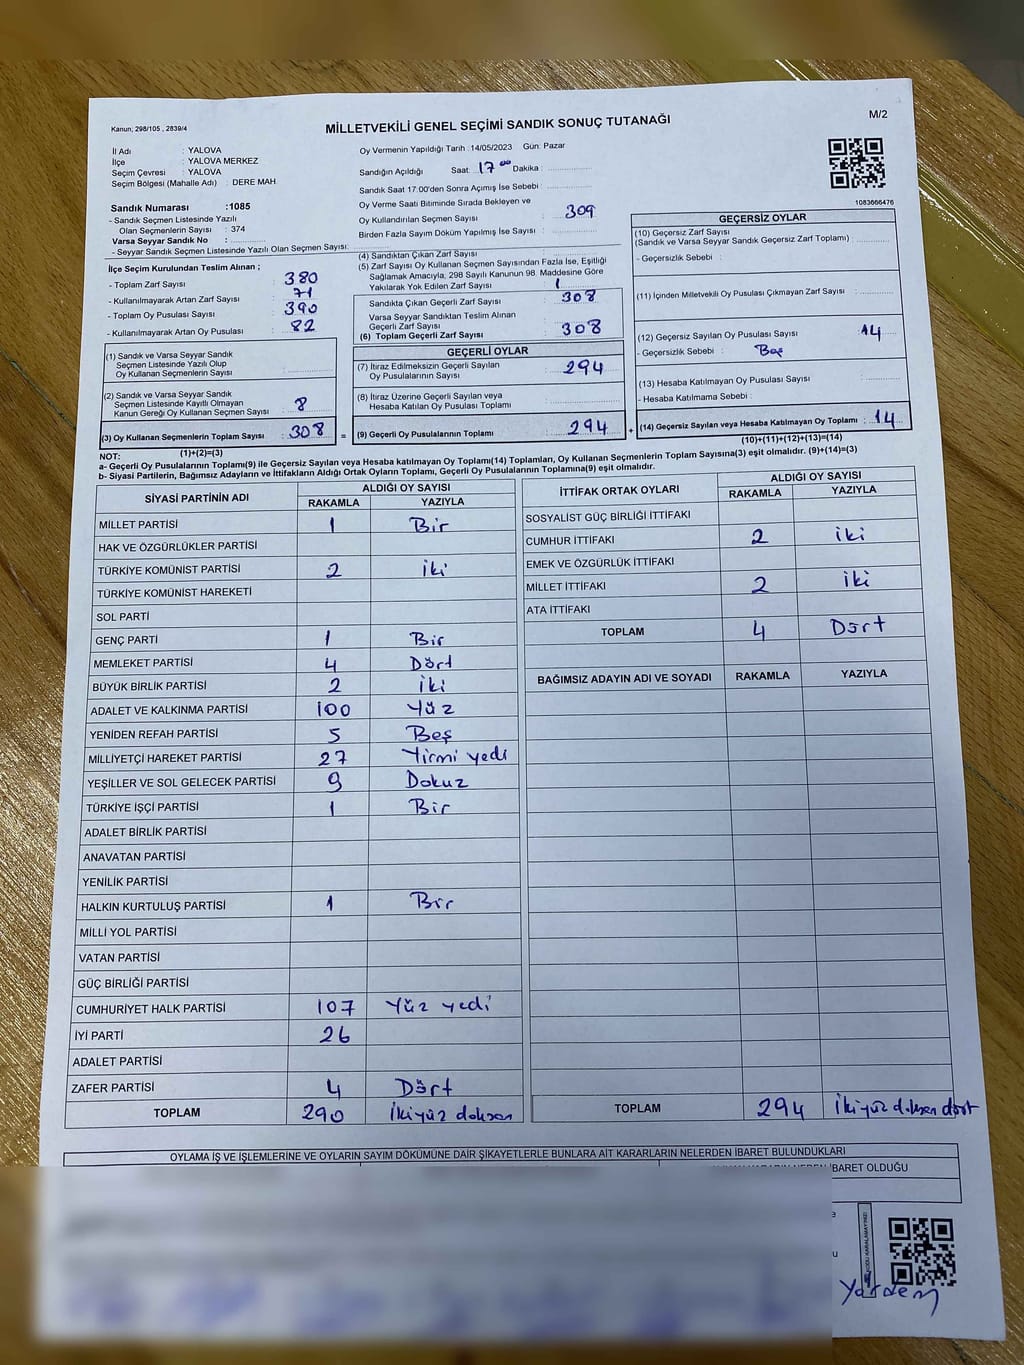 Kanun; 298/105 , 2839/4
MİLLETVEKİLİ GENEL SEÇİMİ SANDIK SONUÇ TUTANAĞI
M/2
İl Adı : YALOVA
İlçe : YALOVA MERKEZ
Seçim Çevresi : YALOVA
Seçim Bölgesi (Mahalle Adı) : DERE MAH
Sandık Numarası :1085
- Sandık Seçmen Listesinde Yazılı
Olan Seçmenlerin Sayısı : 374
Varsa Seyyar Sandık No :
- Seyyar Sandık Seçmen Listesinde Yazılı Olan Seçmen Sayısı:
Oy Vermenin Yapıldığı Tarih :14/05/2023 Gün: Pazar
Sandığın Açıldığı Saat: 17 00 Dakika :
Sandık Saat 17:00'den Sonra Açımış İse Sebebi :
Oy Verme Saati Bitiminde Sırada Bekleyen ve
Oy Kullandırılan Seçmen Sayısı : 309
Birden Fazla Sayım Döküm Yapılmış İse Sayısı :
1083666476
İlçe Seçim Kurulundan Teslim Alınan ;
- Toplam Zarf Sayısı : 380
- Kullanılmayarak Artan Zarf Sayısı : 71
- Toplam Oy Pusulası Sayısı : 390
- Kullanılmayarak Artan Oy Pusulası : 82
(1) Sandık ve Varsa Seyyar Sandık
Seçmen Listesinde Yazılı Olup
Oy Kullanan Seçmenlerin Sayısı :
(2) Sandık ve Varsa Seyyar Sandık
Seçmen Listesinde Kayıtlı Olmayan
Kanun Gereği Oy Kullanan Seçmen Sayısı : 8
(3) Oy Kullanan Seçmenlerin Toplam Sayısı : 308
(4) Sandıktan Çıkan Zarf Sayısı :
(5) Zarf Sayısı Oy Kullanan Seçmen Sayısından Fazla İse, Eşitliği
Sağlamak Amacıyla, 298 Sayılı Kanunun 98. Maddesine Göre
Yakılarak Yok Edilen Zarf Sayısı : 1
Sandıkta Çıkan Geçerli Zarf Sayısı : 308
Varsa Seyyar Sandıktan Teslim Alınan
Geçerli Zarf Sayısı :
(6) Toplam Geçerli Zarf Sayısı : 308
GEÇERLİ OYLAR
(7) İtiraz Edilmeksizin Geçerli Sayılan
Oy Pusulalarının Sayısı : 294
(8) İtiraz Üzerine Geçerli Sayılan veya
Hesaba Katılan Oy Pusulası Toplamı :
= (9) Geçerli Oy Pusulalarının Toplamı : 294
GEÇERSİZ OYLAR
(10) Geçersiz Zarf Sayısı
(Sandık ve Varsa Seyyar Sandık Geçersiz Zarf Toplamı) :
- Geçersizlik Sebebi :
(11) İçinden Milletvekili Oy Pusulası Çıkmayan Zarf Sayısı :
(12) Geçersiz Sayılan Oy Pusulası Sayısı : 14
- Geçersizlik Sebebi :
(13) Hesaba Katılmayan Oy Pusulası Sayısı :
- Hesaba Katılmama Sebebi :
+ (14) Geçersiz Sayılan veya Hesaba Katılmayan Oy Toplamı : 14
(1)+(2)=(3)
(10)+(11)+(12)+(13)=(14)
NOT:
a- Geçerli Oy Pusulalarının Toplamı(9) ile Geçersiz Sayılan veya Hesaba katılmayan Oy Toplam(14) Toplamları, Oy Kullanan Seçmenlerin Toplam Sayısına(3) eşit olmalıdır. (9)+(14)=(3)
b- Siyasi Partilerin, Bağımsız Adayların ve İttifakların Aldığı Ortak Oyların Toplamı, Geçerli Oy Pusulalarının Toplamına(9) eşit olmalıdır.
SİYASİ PARTİNİN ADI ALDIĞI OY SAYISI
RAKAMLA YAZIYLA
MİLLET PARTİSİ 1 Bir
HAK VE ÖZGÜRLÜKLER PARTİSİ
TÜRKİYE KOMÜNİST PARTİSİ 2 iki
TÜRKİYE KOMÜNİST HAREKETİ
SOL PARTİ
GENÇ PARTİ 1 Bir
MEMLEKET PARTİSİ 4 Dört
BÜYÜK BİRLİK PARTİSİ 2 iki
ADALET VE KALKINMA PARTİSİ 100 Yüz
YENİDEN REFAH PARTİSİ 5 Beş
MİLLİYETÇİ HAREKET PARTİSİ 27 Yirmi yedi
YEŞİLLER VE SOL GELECEK PARTİSİ 9 Dokuz
TÜRKİYE İŞÇİ PARTİSİ 1 Bir
ADALET BİRLİK PARTİSİ
ANAVATAN PARTİSİ
YENİLİK PARTİSİ
HALKIN KURTULUŞ PARTİSİ 1 Bir
MİLLİ YOL PARTİSİ
VATAN PARTİSİ
GÜÇ BİRLİĞİ PARTİSİ
CUMHURİYET HALK PARTİSİ 107 Yüz yedi
İYİ PARTİ 26
ADALET PARTİSİ
ZAFER PARTİSİ 4 Dört
TOPLAM 290 İkiyüz doksan
İTTİFAK ORTAK OYLARI ALDIĞI OY SAYISI
RAKAMLA YAZIYLA
SOSYALİST GÜÇ BİRLİĞİ İTTİFAKI
CUMHUR İTTİFAKI 2 iki
EMEK VE ÖZGÜRLÜK İTTİFAKI
MİLLET İTTİFAKI 2 iki
ATA İTTİFAKI
TOPLAM 4 Dört
BAĞIMSIZ ADAYIN ADI VE SOYADI RAKAMLA YAZIYLA
TOPLAM 294 İkiyüz doksan dört
OYLAMA İŞ VE İŞLEMLERİNE VE OYLARIN SAYIM DÖKÜMÜNE DAİR ŞİKAYETLERLE BUNLARA AİT KARARLARIN NELERDEN İBARET BULUNDUKLARI
İBARET OLDUĞU